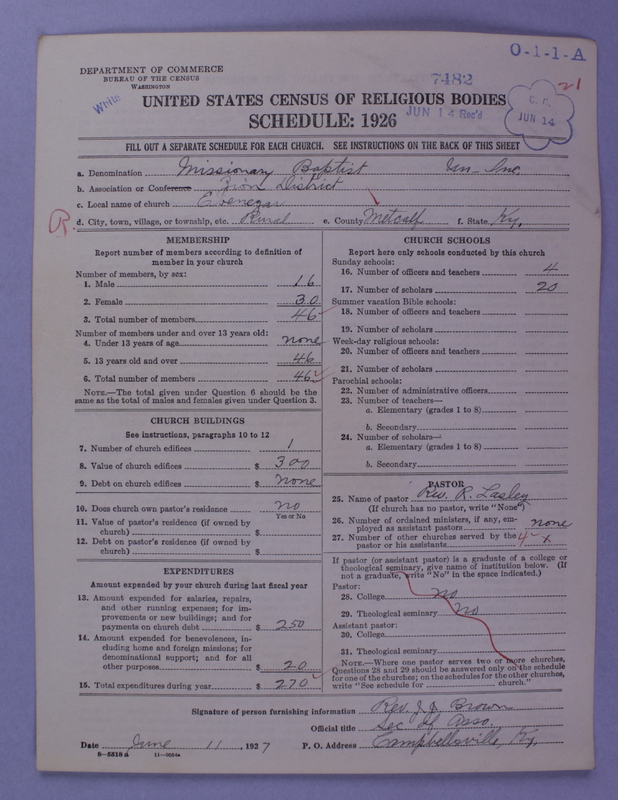 O-1-1-A
DEPARTMENT OF COMMERCE
BUREAU OF THE CENSUS
WASHINGTON
7482
White
21
UNITED STATES CENSUS OF RELIGIOUS BODIES
JUN 14 Rec'd
JUN 14
SCHEDULE: 1926
FILL OUT A SEPARATE SCHEDULE FOR EACH CHURCH. SEE INSTRUCTIONS ON THE BACK OF THIS SHEET
a. Denomination Missionary Baptist
b. Association or Conference Zion District
c. Local name of church Evenezar
R. d. City, town, village, or township, etc. Rural e. County Metcalf f. State Ky.
MEMBERSHIP
Report number of members according to definition of
member in your church
Number of members, by sex:
1. Male 16
2. Female 30
3. Total number of members 46
Number of members under and over 13 years old:
4. Under 13 years of age none
5. 13 years old and over 46
6. Total number of members 46
NOTE.—The total given under Question 6 should be the
same as the total of males and females given under Question 3.
CHURCH BUILDINGS
See instructions, paragraphs 10 to 12
7. Number of church edifices 1
8. Value of church edifices $ 300
9. Debt on church edifices $ none
10. Does church own pastor's residence no
Yes or No
11. Value of pastor's residence (if owned by
church) $
12. Debt on pastor's residence (if owned by
church) $
EXPENDITURES
Amount expended by your church during last fiscal year
13. Amount expended for salaries, repairs,
and other running expenses; for im-
provements or new buildings; and for
payments on church debt $ 250
14. Amount expended for benevolences, in-
cluding home and foreign missions; for
denominational support; and for all
other purposes $ 20
15. Total expenditures during year $ 270
CHURCH SCHOOLS
Report here only schools conducted by this church
Sunday schools:
16. Number of officers and teachers 4
17. Number of scholars 20
Summer vacation Bible schools:
18. Number of officers and teachers
19. Number of scholars
Week-day religious schools:
20. Number of officers and teachers
21. Number of scholars
Parochial schools:
22. Number of administrative officers
23. Number of teachers—
a. Elementary (grades 1 to 8)
b. Secondary
24. Number of scholars—
a. Elementary (grades 1 to 8)
b. Secondary
PASTOR
25. Name of pastor Rev. R. Lasley
(If church has no pastor, write "None")
26. Number of ordained ministers, if any, em-
ployed as assistant pastors none
27. Number of other churches served by the
pastor or his assistants 4 x
If pastor (or assistant pastor) is a graduate of a college or
theological seminary, give name of institution below. (If
not a graduate, write "No" in the space indicated.)
Pastor:
28. College no
29. Theological seminary No
Assistant pastor:
30. College
31. Theological seminary
NOTE.—Where one pastor serves two or more churches,
Questions 28 and 29 should be answered only on the schedule
for one of the churches; on the schedules for the other churches,
write "See schedule for church."
Signature of person furnishing information Rev. J. J. Brown
Official title Sec of Asso.
Date June 11, 1927 P. O. Address Campbellsville, Ky.
8-5518a 11-9054